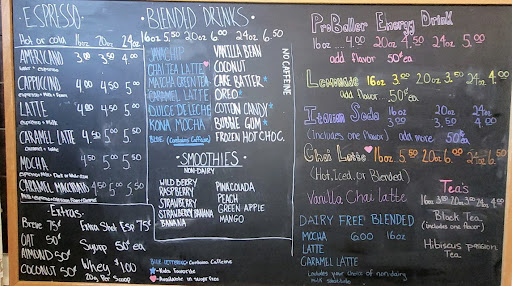 ESPRESSO
Hot or cold 16oz 20oz 24oz
AMERICANO 3.00 3.50 4.00
CAPPUCCINO 4.00 4.50 5.00
LATTE 4.00 4.50 5.00
espresso + Milk
CARAMEL LATTE 4.50 5.00 5.50
MOCHA 4.50 5.00 5.50
CARAMEL MACCHIATO 4.50 5.00 5.50
Extras:
Breve 75¢ Extra Shot Esp 75¢
OAT 50¢ Syrup 50¢ ea
ALMOND 50¢ Whey $1.00
COCONUT 50¢ 20g Per Scoop
BLENDED DRINKS
16oz 5.50 20oz 6.00 24oz 6.50
JAVACHIP
CHAI TEA LATTE
MATCHA GREEN TEA
CARAMEL LATTE
DULCE DE LECHE
KONA MOCHA
BLUE: (Contains Caffeine)
VANILLA BEAN
COCONUT
CAKE BATTER
OREO
COTTON CANDY
BUBBLE GUM
FROZEN HOT CHOC.
NO CAFFEINE
SMOOTHIES
NON-DAIRY
WILD BERRY
RASPBERRY
STRAWBERRY
STRAWBERRY BANANA
BANANA
PINA COLADA
PEACH
GREEN APPLE
MANGO
BLUE LETTERING: Contains Caffeine
Kids Favorite
Available in Sugar Free
ProBaller Energy Drink
16oz .... 4.00 20oz 4.50 24oz 5.00
add flavor 50¢ ea
Lemonade 16oz 3.00 20oz 3.50 24oz 4.00
add flavor .. 50¢ ea
Italian Soda 16oz 20oz 24oz
3.00 3.50 4.00
(includes one flavor) add more 50¢ ea
Chai Latte 16oz 5.50 20oz 6.00 24oz 6.50
(Hot, iced, or Blended)
Vanilla Chai latte
DAIRY FREE BLENDED
MOCHA 6.00 16oz
LATTE
CARAMEL LATTE
Includes your choice of non-dairy
milk substitute
Tea's
16oz 3.00 20oz 3.50 24oz 4.00
Black Tea
(includes one flavor)
Hibiscus passion
Tea